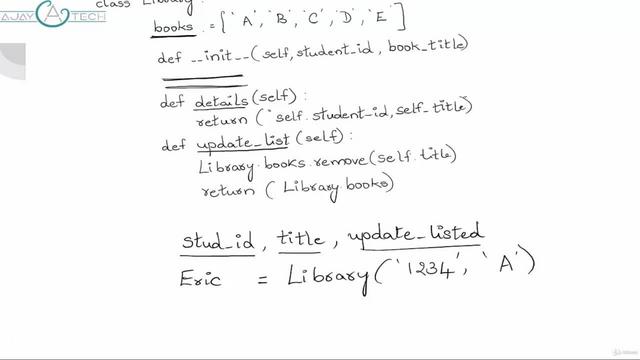 AJAY A TECH
class Library:
books = [ 'A', 'B', 'C', 'D', 'E' ]
def __init__(self, student_id, book_title)
def details(self):
return ('self.student_id, self_title)
def update_list(self):
Library.books.remove(self.title)
return (Library.books)
stud_id, title, update_listed
Eric = Library('1234', 'A')